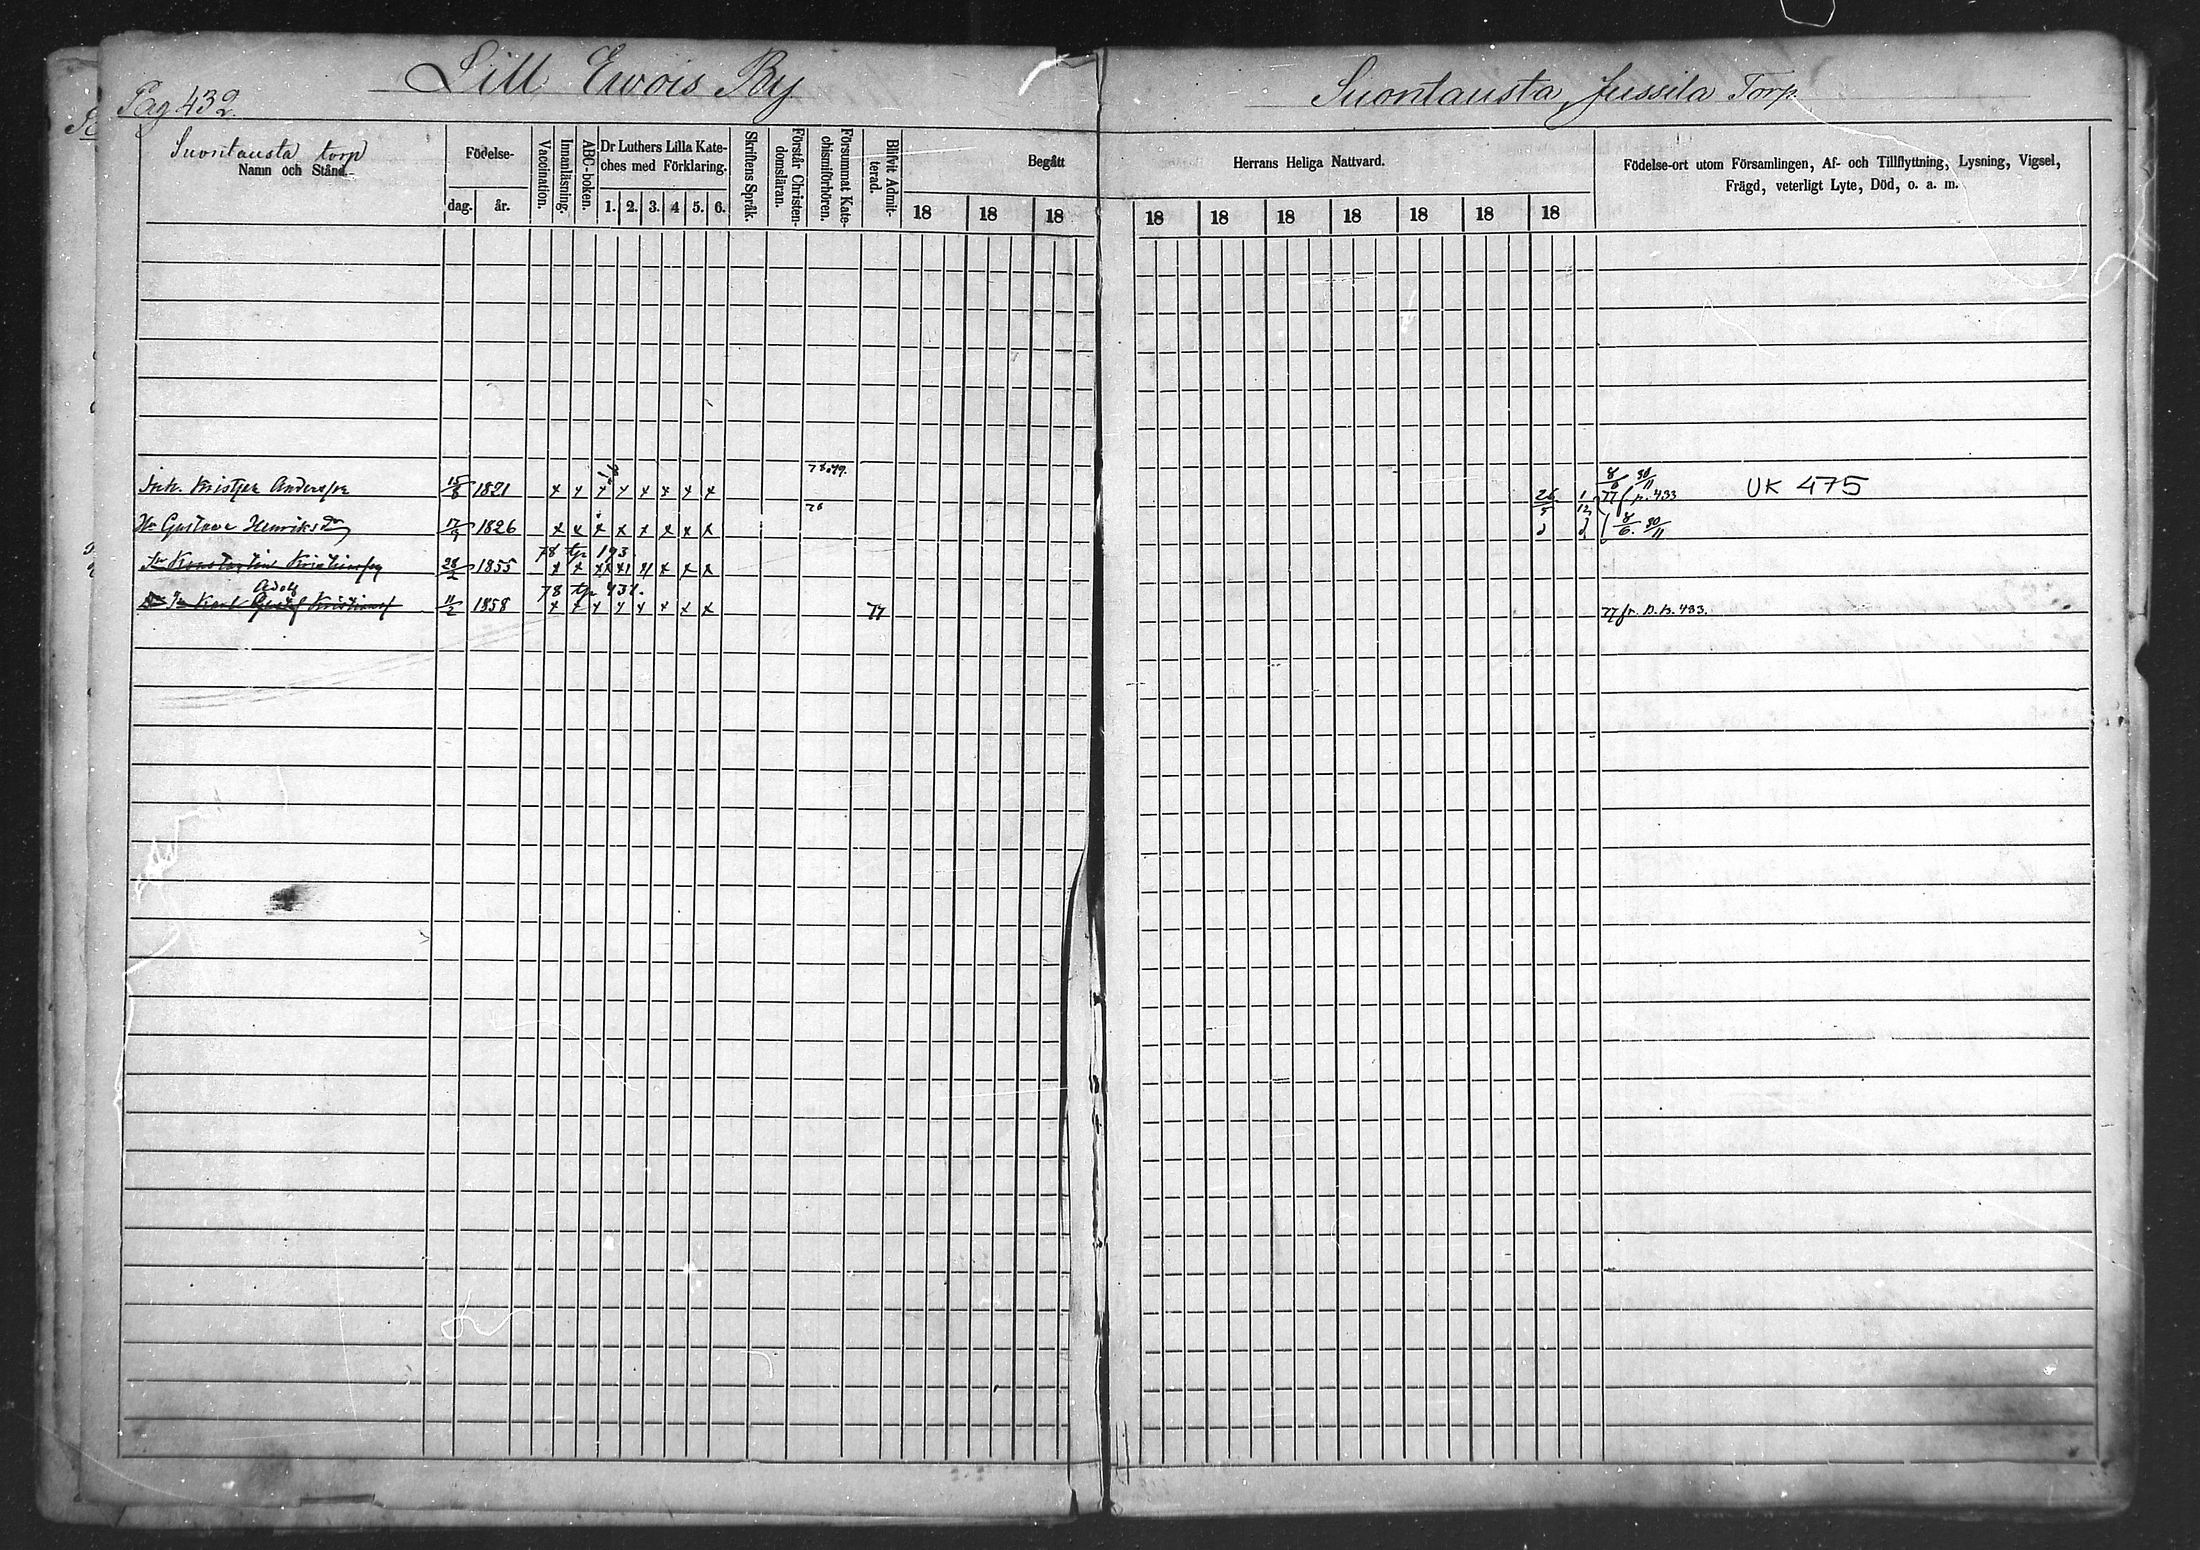 Pag 432.
Lill Ewois By
Suontausta Jussila Torp
Suontausta torp
Namn och Stånd.
Födelse-
dag. år.
Vaccination.
Innanläsning.
ABC-boken.
Dr Luthers Lilla Kate-
ches med Förklaring.
1. 2. 3. 4 5. 6.
Skriftens Språk.
Förstår Christen-
domsläran.
Försummat Kate-
chismiförhören.
Blifvit Admit-
terad.
Begått
18 18 18
Herrans Heliga Nattvard.
18 18 18 18 18 18 18
Födelse-ort utom Församlingen, Af- och Tillflyttning, Lysning, Vigsel,
Frägd, veterligt Lyte, Död, o. a. m.
78.79. 8/6 30/11
Kristjer Andersson 15/8 1821 x x x x x x x x 26/5 1/12 77 p. 433 UK 475
78
Hu Gustava Henriksdr 17/9 1826 x x x x x x x x 8/6. 30/11
78 tp 193.
Sn Konstantin Kristiansson 28/2 1855 x x x x x x x x
Adolf 78 tp 431.
Karl Gustaf Kristianss 11/2 1858 x x x x x x x x 77 77 fr. p. 433.